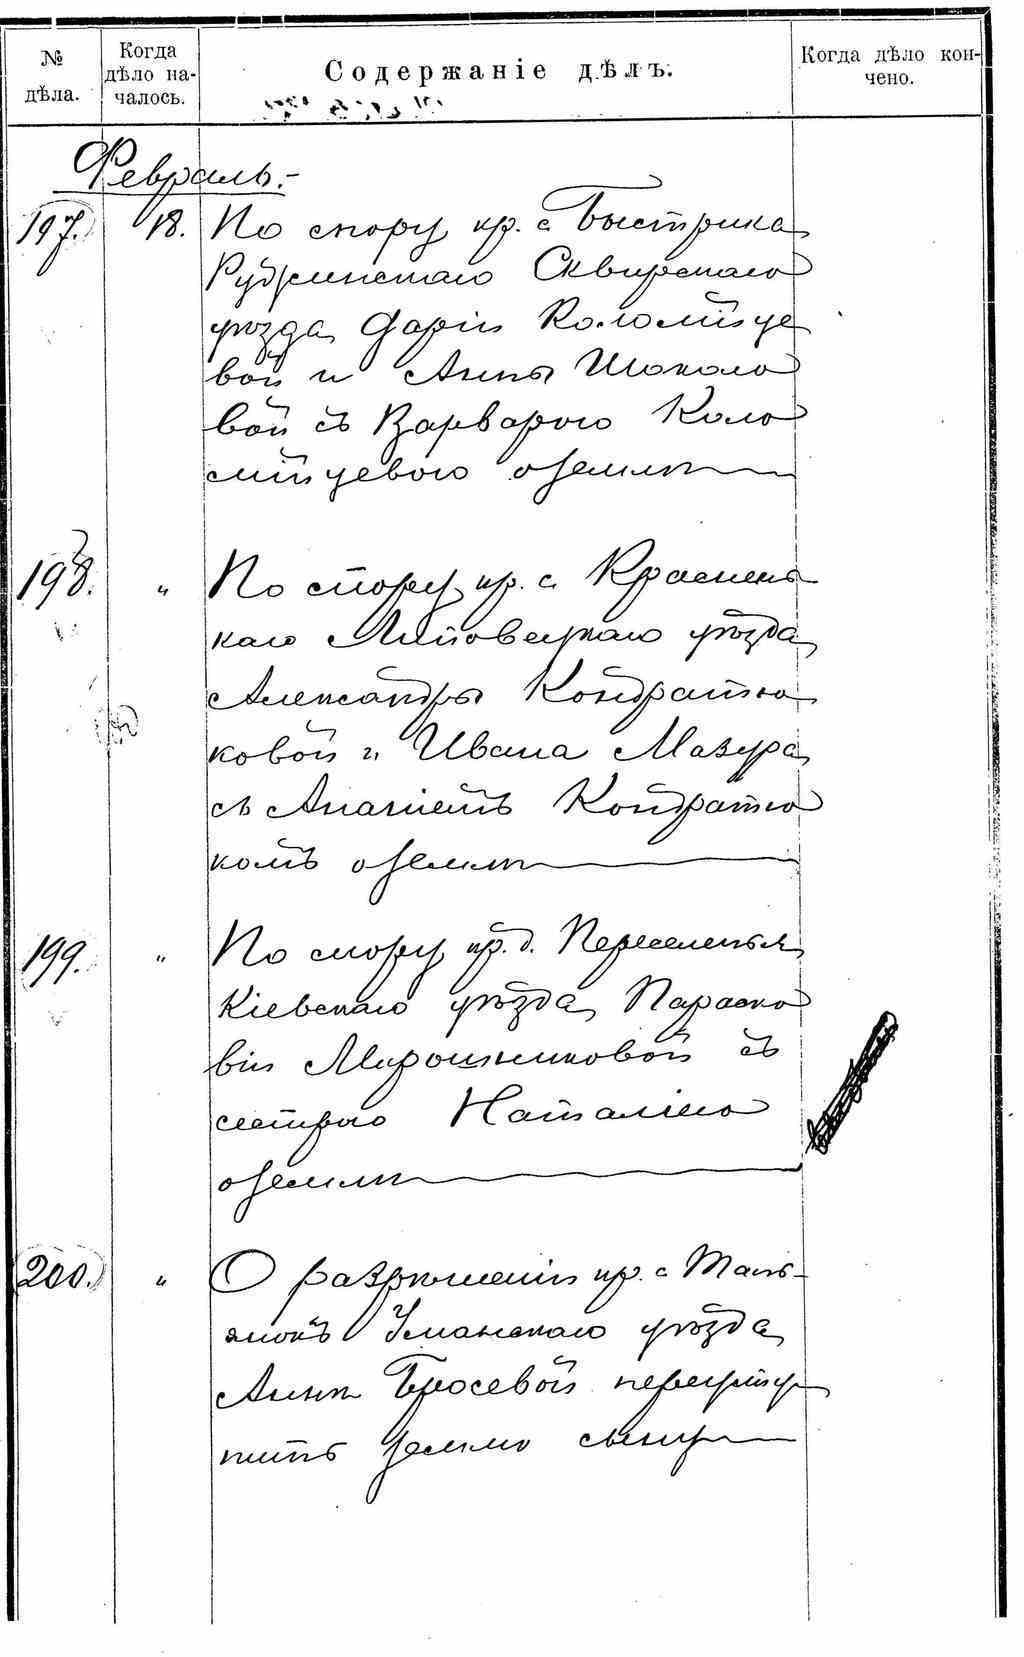 № дѣла.
Когда дѣло на-
чалось.
Содержаніе дѣлъ.
Когда дѣло кон-
чено.
Февраль.-
197. 18. По спору кр. с. Быстрика
Ружинскаго Сквирскаго
уѣзда Даріи Коломійце
вой и Анны Шокало
вой съ Варварою Коло
мійцевою о землѣ
198. " По спору кр. с. Краснень
каго Липовецкаго уѣзда
Александры Кондратю
ковой и Ивана Мазура
съ Ананіемъ Кондратю
комъ о землѣ
199. " По спору кр. д. Переселенья
Кіевскаго уѣзда Параско
віи Мирошниковой съ
сестрою Наталіею
о землѣ
200. " О разрѣшеніи кр. с. Таль-
янокъ Уманскаго уѣзда
Аннѣ переусту
пить землю сыну